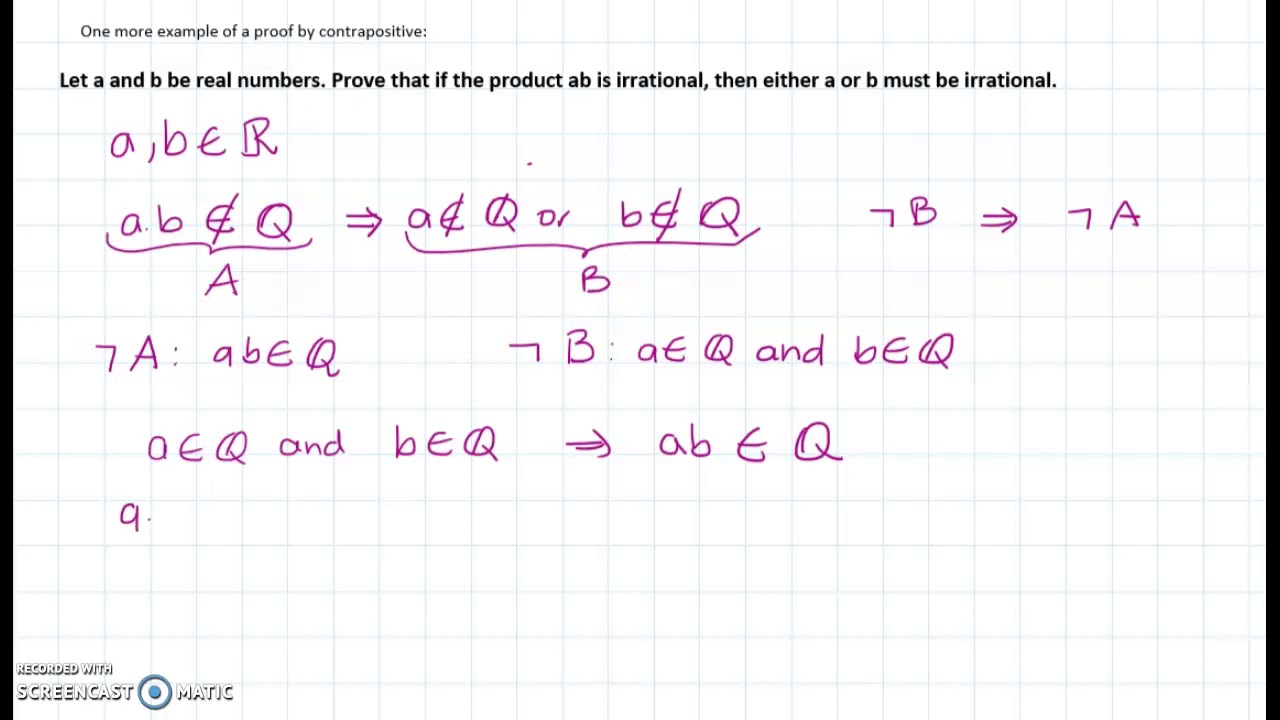 One more example of a proof by contrapositive:
Let a and b be real numbers. Prove that if the product ab is irrational, then either a or b must be irrational.
a, b ∈ ℝ
a.b ∉ ℚ ⇒ a ∉ ℚ or b ∉ ℚ ¬B ⇒ ¬A
A B
¬A: ab ∈ ℚ ¬B: a ∈ ℚ and b ∈ ℚ
a ∈ ℚ and b ∈ ℚ ⇒ ab ∈ ℚ
a
RECORDED WITH
SCREENCAST MATIC